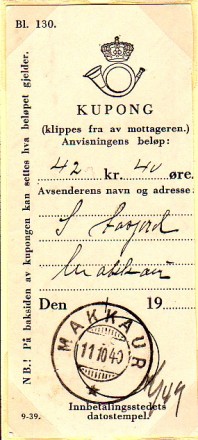 Bl. 130.
KUPONG
(klippes fra av mottageren.)
Anvisningens beløp:
42 kr. 40 øre.
Avsenderens navn og adresse:
Makkaur
Den 19
MAKKAUR
11 10 40
Innbetalingsstedets
datostempel.
9-39.
N.B.! På baksiden av kupongen kan settes hva beløpet gjelder.